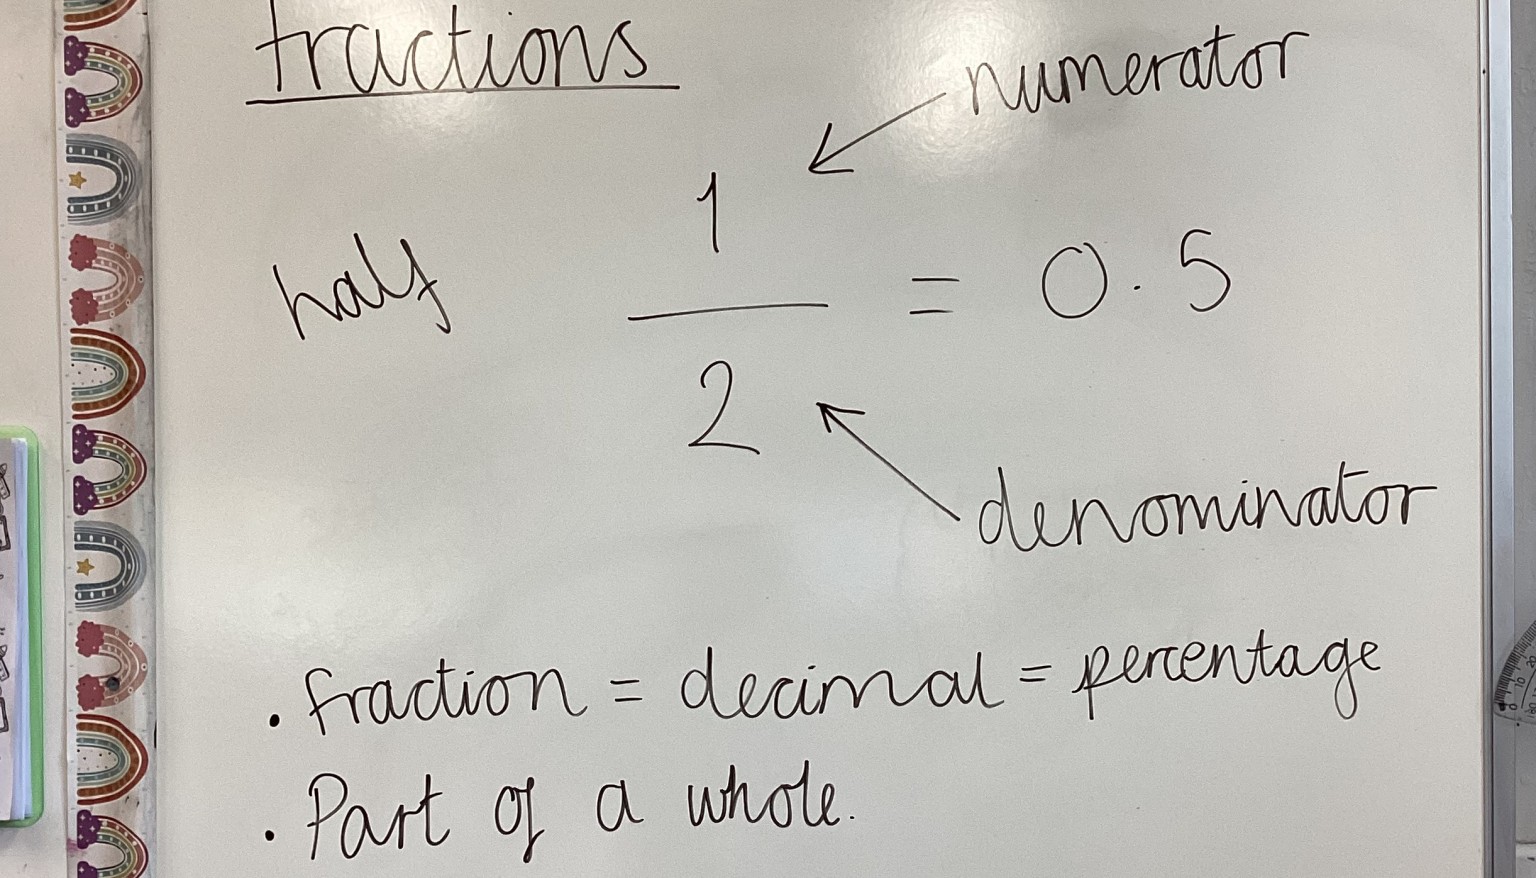 fractions
numerator
half 1/2 = 0.5
denominator
. fraction = decimal = percentage
. Part of a whole.